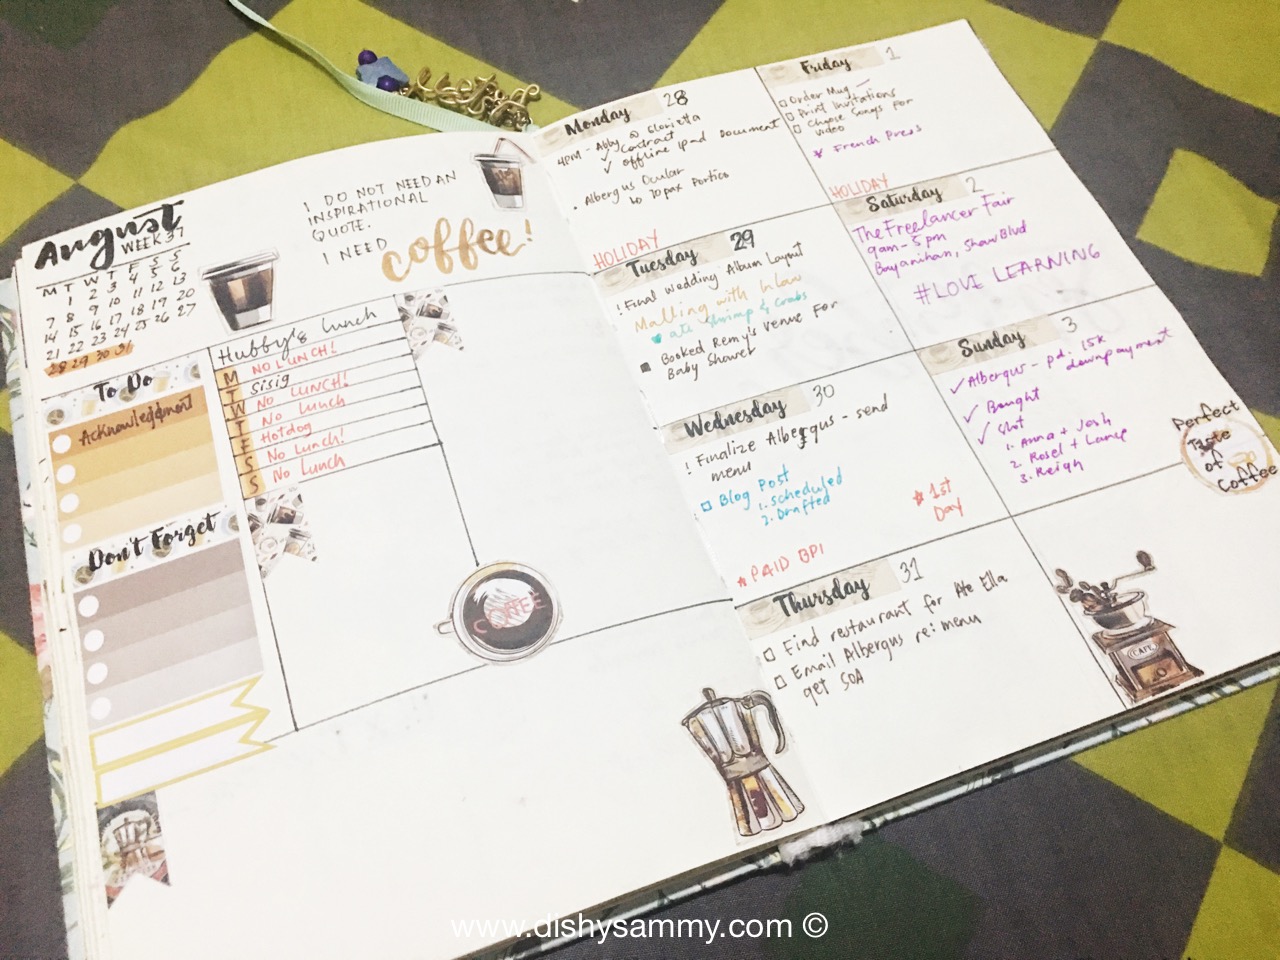 August
WEEK 37
M T W T F S S
1 2 3 4 5 6
7 8 9 10 11 12 13
14 15 16 17 18 19 20
21 22 23 24 25 26 27
28 29 30 31
I DO NOT NEED AN
INSPIRATIONAL
QUOTE.
I NEED coffee!
To Do
Acknowledgment
Don't Forget
Hubby's Lunch
M NO LUNCH!
T Sisig
W No LUNCH!
T No Lunch
F Hotdog
S No Lunch!
S No Lunch
COFFEE
Monday 28
4PM - Abby @ Glorietta
✓ Contract
✓ offline ipad Document
Albergus Ocular
↳ 70 pax Portico
HOLIDAY
Tuesday 29
! Final Wedding Album Layout
Malling with Inlaw
ate Shrimp & Crabs
Booked Remy's Venue For
Baby Shower
Wednesday 30
! Finalize Albergus - send
menu
Blog Post
1. Scheduled
2. Drafted
1st
Day
PAID BPI
Thursday 31
Find restaurant for Ate Ella
Email Albergus re: menu
get SOA
Friday 1
Order Mug
Print Invitations
Choose Songs For
Video
French Press
HOLIDAY
Saturday 2
The Freelancer Fair
9am - 5pm
Bayanihan, Shaw Blvd
#LOVE LEARNING
Sunday 3
✓ Albergus - pd. 15k
downpayment
✓ Bought
✓ Shot
1. Anna + Josh
2. Rosel + Lance
3. Reigh
Perfect
Taste
of
Coffee
CAFE
www.dishysammy.com ©